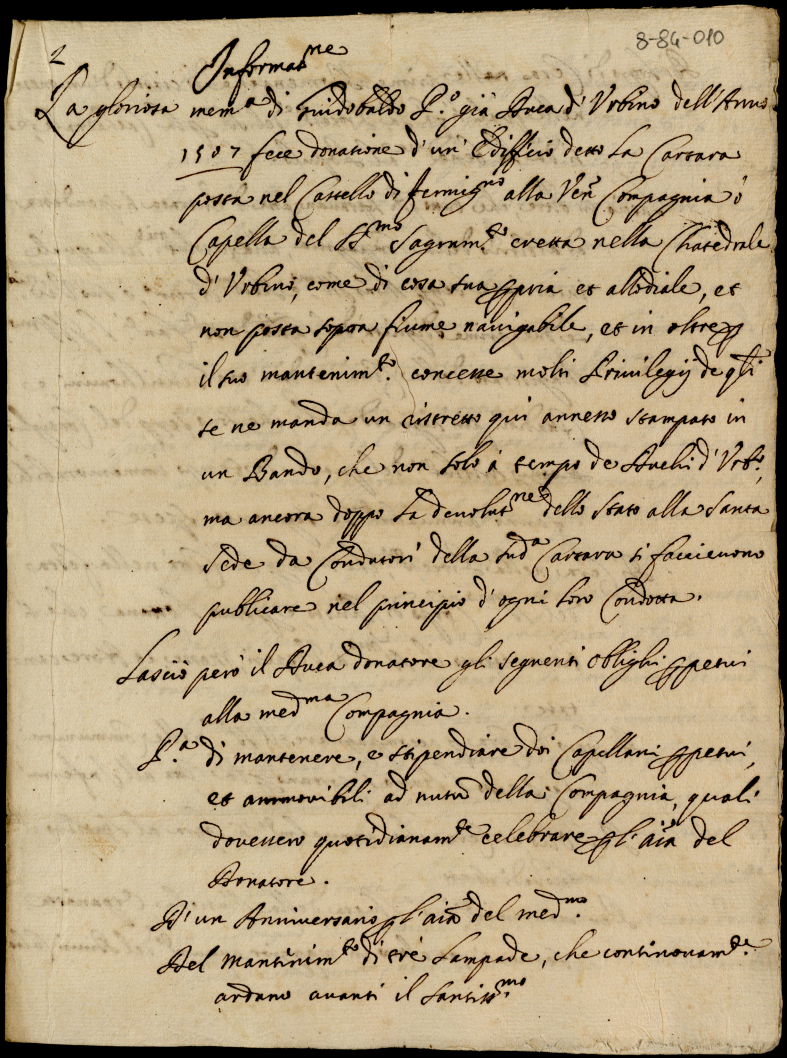 8-84-010
2
Informat.ne
La gloriosa mem.a di Guidobaldo P.o già Duca d'Urbino dell'Anno
1507 fece donatione d'un' Edifficio detto la Cartara
posta nel Castello di Fermig.no alla Ven. Compagnia ò
Capella del SS.mo Sagram.to eretta nella Chatedrale
d'Urbino, come di cosa sua ppria et allodiale, et
non posta sopra fiume navigabile, et in oltre p
il suo mantenim.to concesse molti Privilegij de qli
se ne manda un ristretto qui annesso stampato in
un Bando, che non solo à tempo de Duchi d'Urb.o,
ma ancora doppo la devolut.ne dello Stato alla Santa
Sede da Condutori della sud.a Cartara si faccievono
publicare nel principio d'ogni loro Condotta.
Lasciò però il Duca donatore gli seguenti oblighi ppetui
alla med.ma Compagnia.
P.a di mantenere, e stipendiare doi Capellani ppetui,
et ammovibili ad nutu della Compagnia, quali
dovessero quotidianam.te celebrare p l'aia del
Donatore.
D'un Anniversario p l'aia del med.mo
Del mantinim.to di tre Lampade, che continovam.te
ardano avanti il Santiss.mo